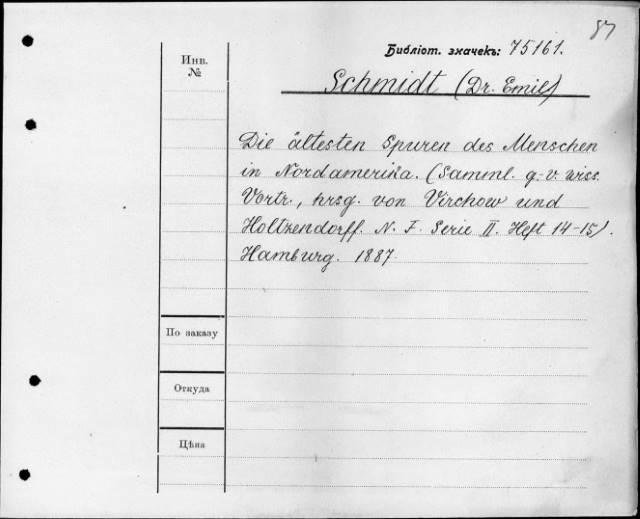 87
Библіот. значекъ: 75161.
Инв.
№
Schmidt (Dr. Emil)
Die ältesten Spuren des Menschen
in Nordamerika. (Samml. g.-v. wiss.
Vortr., hrsg. von Virchow und
Holtzendorff. N. F. Serie II. Heft 14-15).
Hamburg. 1887.
По заказу
Откуда
Цѣна